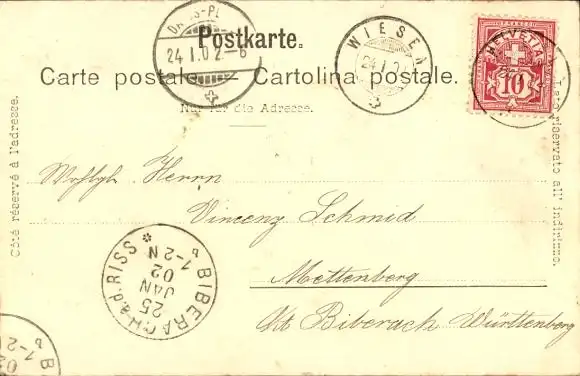 Postkarte.
Carte postale. Cartolina postale.
Nur für die Adresse.
Côté réservé à l'adresse.
Lato riservato all' indirizzo.
24.I.02.-6
WIESEN
24.I.02
HELVETIA
10
Wohlgb. Herrn
Vincenz Schmid
Mettenberg
BIBERACH a.d. RISS
25 JAN 02
1-2N
OA Biberach Württemberg
B
1-2